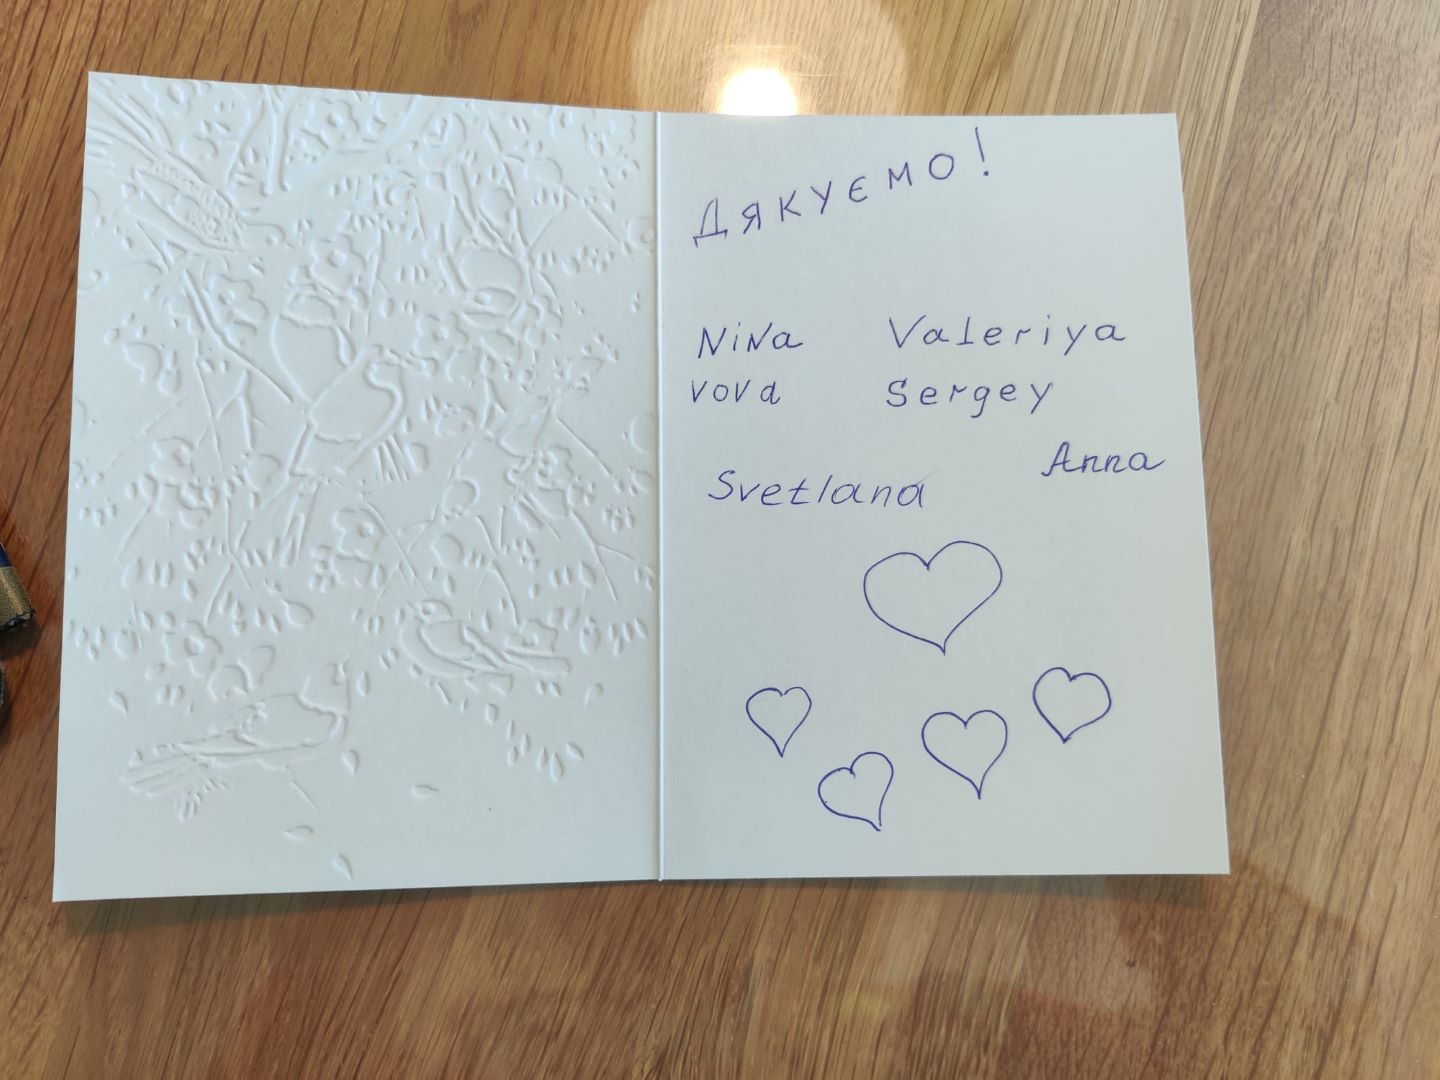 Дякуємо!
NiNa Valeriya
vova Sergey
Anna
Svetlana